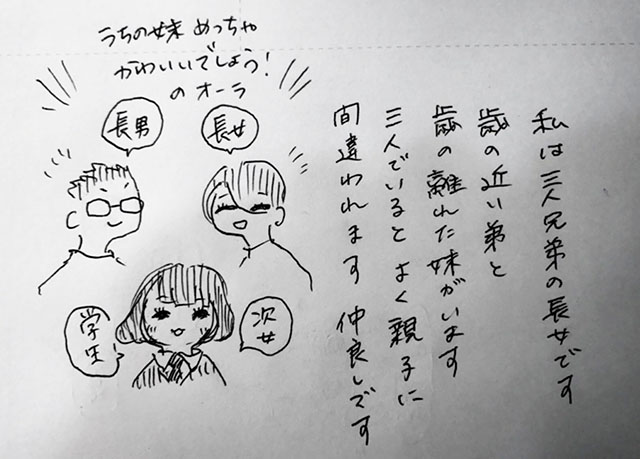 私は三人兄弟の長女です
歳の近い弟と
歳の離れた妹がいます
三人でいると よく親子に
間違われます 仲良しです
うちの妹 めっちゃ
かわいいでしょう!
のオーラ
長男
長女
次女
学生